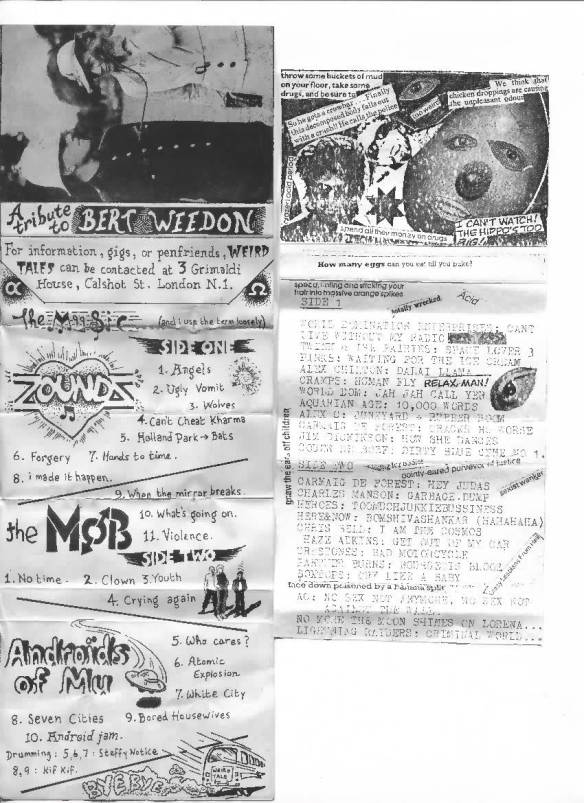 A tribute to BERT WEEDON
For information, gigs, or penfriends, WEIRD
TALES can be contacted at 3 Grimaldi
House, Calshot St. London N.1.
The Music (and i use the term loosely)
ZOUNDS
SIDE ONE
1. Angels
2. Ugly Vomit
3. Wolves
4. Can't Cheat Kharma
5. Holland Park → Bats
6. Forgery 7. Hands to time.
8. i made it happen.
9. When the mirror breaks.
the MOB
10. What's going on.
11. Violence.
SIDE TWO
1. No time. 2. Clown 3. Youth
4. Crying again
Androids of Mu
5. Who cares?
6. Atomic Explosion
7. White City
8. Seven Cities 9. Bored Housewives
10. Android jam.
Drumming: 5,6,7: Steffy Notice
8,9: Kif Kif.
WEIRD TALES
BYE BYE
throw some buckets of mud
on your floor, take some
drugs, and be sure to
So he gets a crowbar... Finally
this decomposed body falls out
with a crush! He calls the police
too weird
We think that
chicken droppings are causing
the unpleasant odour
spend all their money on drugs
I CAN'T WATCH!
THE HIPPO'S TOO
BIG!
How many eggs can you eat till you puke?
hair into massive orange spikes
SIDE 1
totally wrecked
Acid
WORLD DOMINATION ENTERPRISES: CANT
LIVE WITHOUT MY RADIO
SPACE LOVES 3
WAITING FOR THE ICE CREAM
ALEX CHILTON: DALAI LLAMA
CRAMPS: HUMAN FLY RELAX, MAN!
WORLD DOM: JAH JAH CALL YER
AQUARIAN AGE: 10,000 WORDS
ALEX C: JUNKYARD & RUBBER ROOM
JIM DICKINSON: HOW SHE DANCES
gnaw the ears off children
SIDE TWO
pointy-eared purveyor of justice
sexist wanker
CARMAIG DE FOREST: HEY JUDAS
CHARLES MANSON: GARBAGE DUMP
HEROES: TOOMUCHJUNKIEBUSSINESS
HERE&NOW: BOMSHIVASHANKAR (HAHAHAHA)
CHRIS BELL: I AM THE COSMOS
HAZE ADKINS: GET OUT OF MY CAR
BAD MOTORCYCLE
BOURGEOIS BLOOD
BOXTOPS: CRY LIKE A BABY
face down poisoned by a banana split
AC: NO SEX NOT ANYMORE, NO SEX NOT
NO MORE THE MOON SHINES ON LORENA...
LIGHTNING RAIDERS: CRIMINAL WORLD...